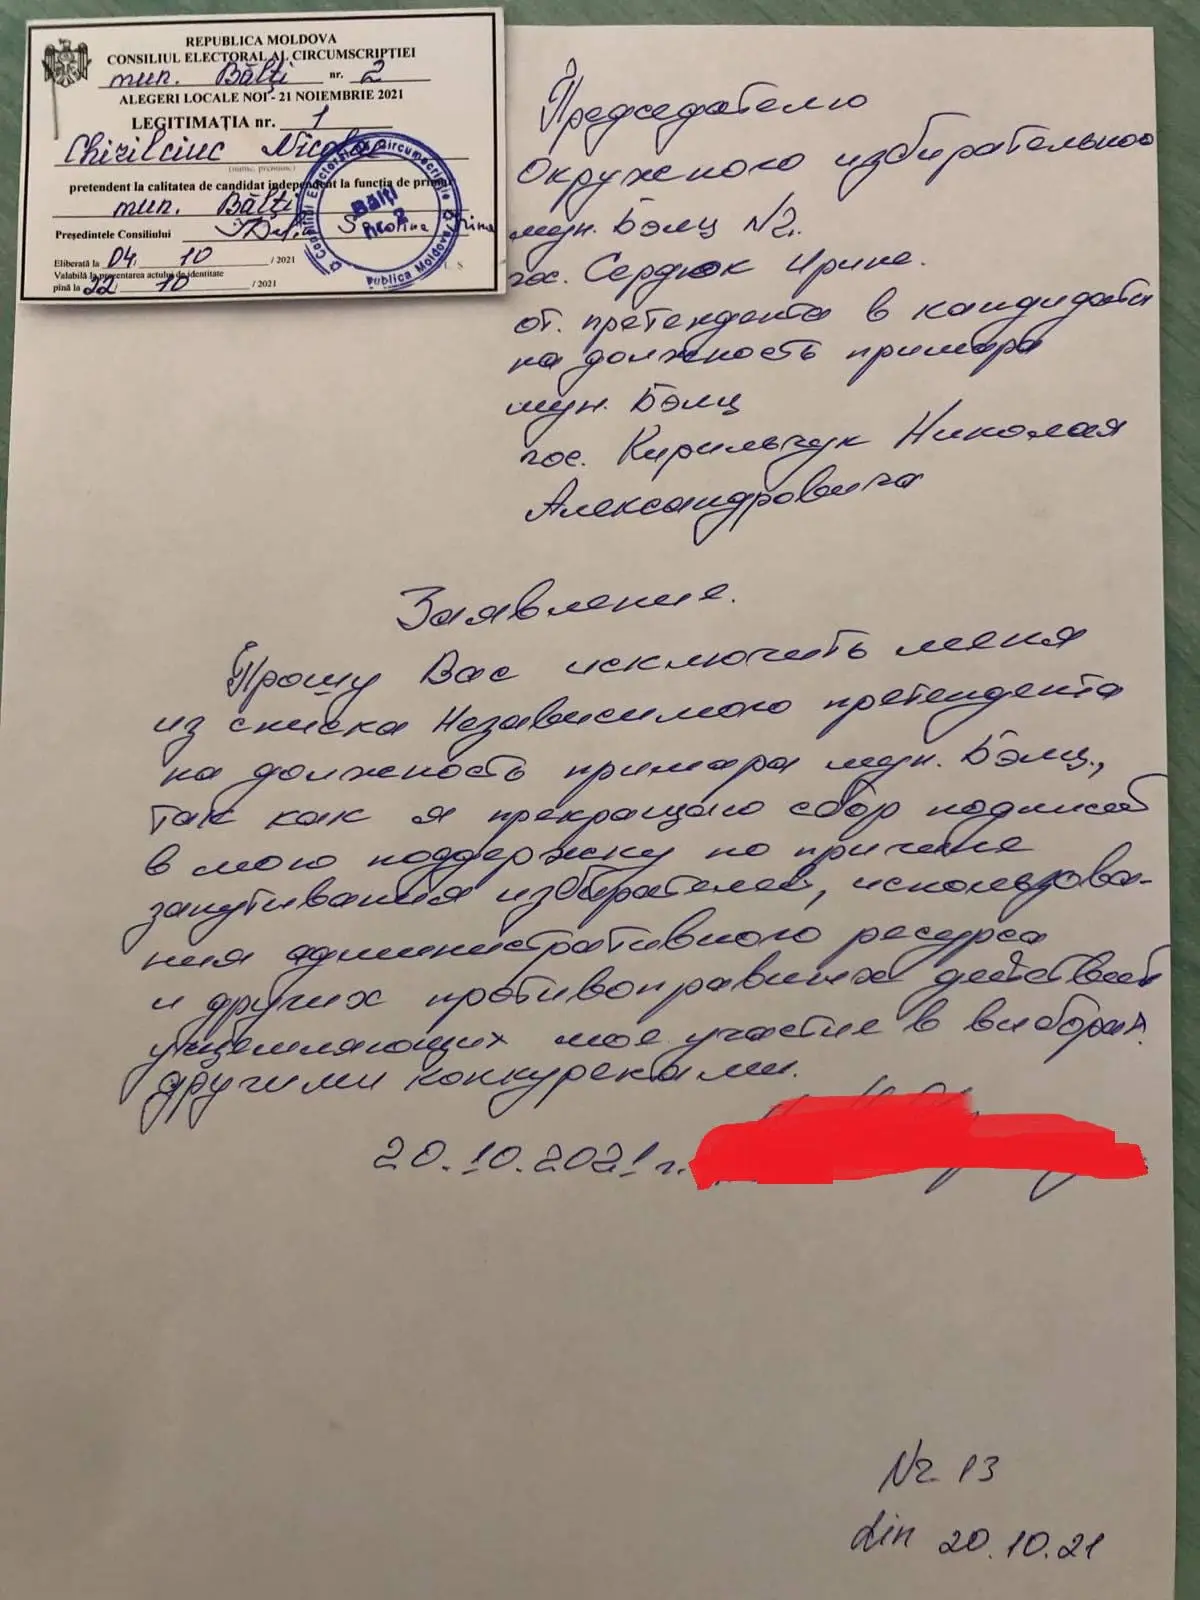 REPUBLICA MOLDOVA
CONSILIUL ELECTORAL AL CIRCUMSCRIPȚIEI
mun. Bălți nr. 2
ALEGERI LOCALE NOI - 21 NOIEMBRIE 2021
LEGITIMAȚIA nr. 1
Chirilciuc Nicolae
(nume, prenume)
pretendent la calitatea de candidat independent la funcția de primar
mun. Bălți
Președintele Consiliului
Eliberată la 04 10 / 2021
Valabilă la prezentarea actului de identitate
pînă la 22 10 / 2021
Bălți
Republica Moldova
Председателю
Окружного избирательного
мун. Бэлц №2.
гос. Сердюк Ирине.
от. претендента в кандидаты
на должность примара
мун. Бэлц
гос. Кирильчук Николая
Александровича
Заявление.
Прошу Вас исключить меня
из списка Независимого претендента
на должность примара мун. Бэлц.,
так как я прекращаю сбор подписей
в мою поддержку по причине
запутивания избирателей, использова-
ния административного ресурса
и других противоправных действий
ущемляющих мое участие в выборах
другими конкурентами.
20.10.2021 г.
Nr. 13
din 20.10.21